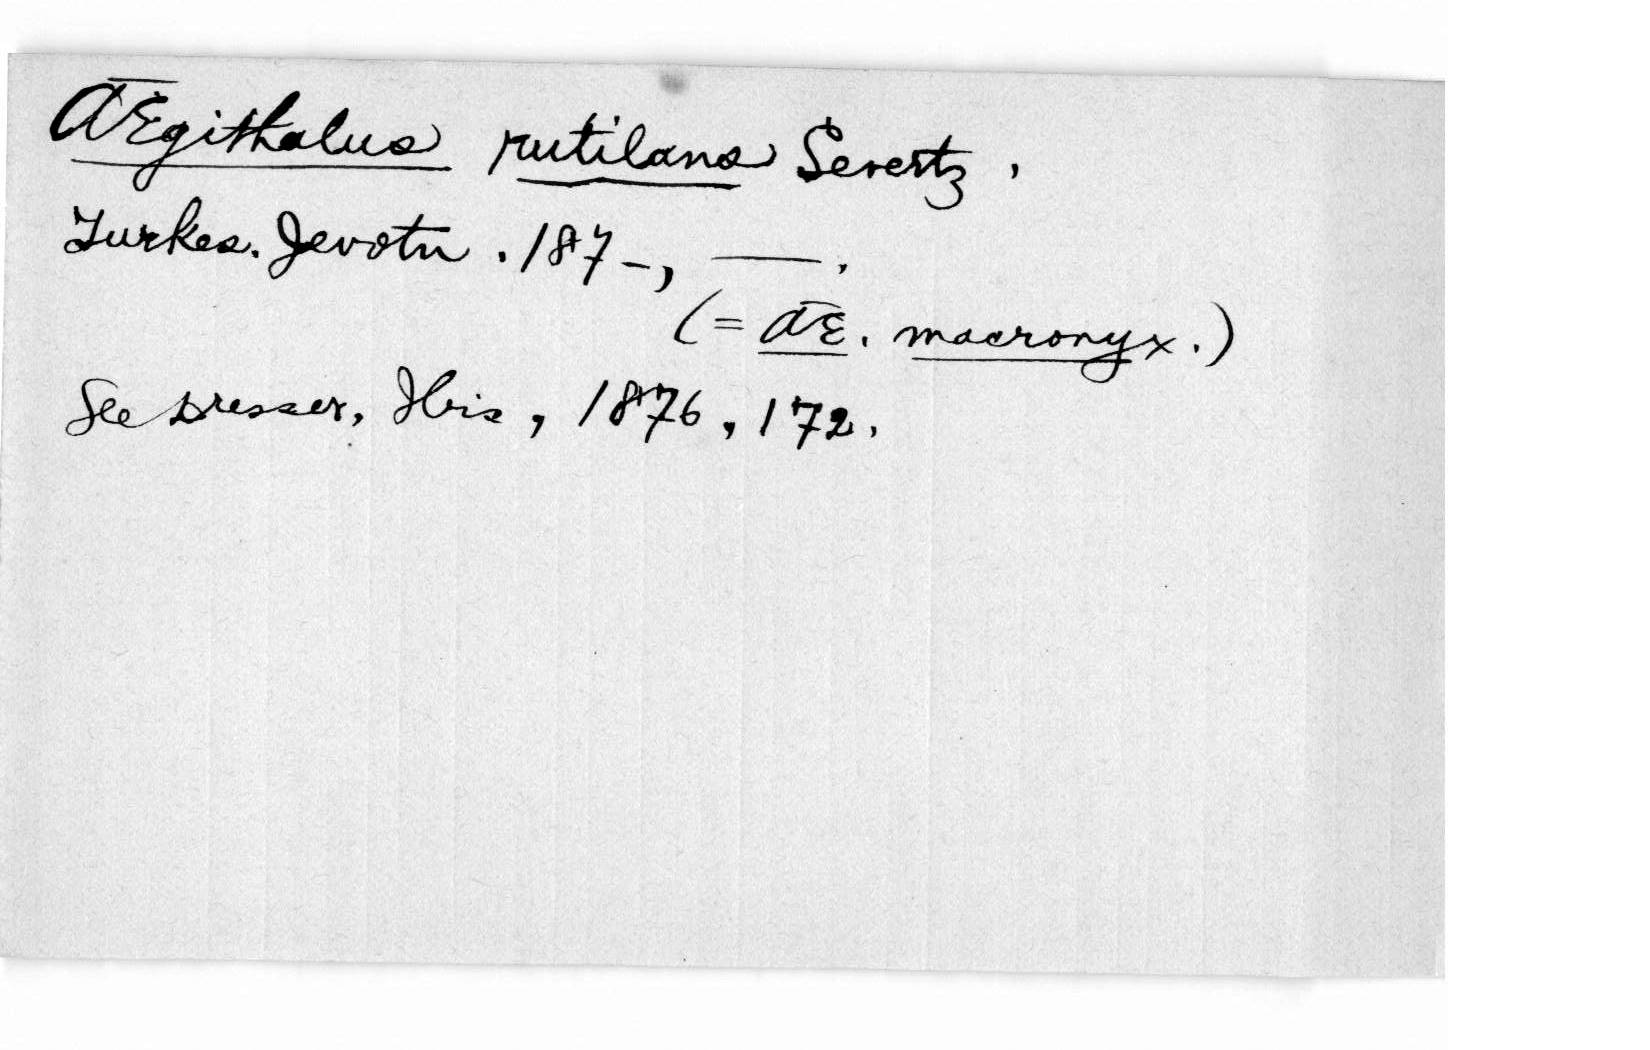 Ægithalus rutilans Severtz.
Turkes. Jevotn. 187-, ——.
(= Æ. macronyx.)
See Dresser, Ibis, 1876, 172.